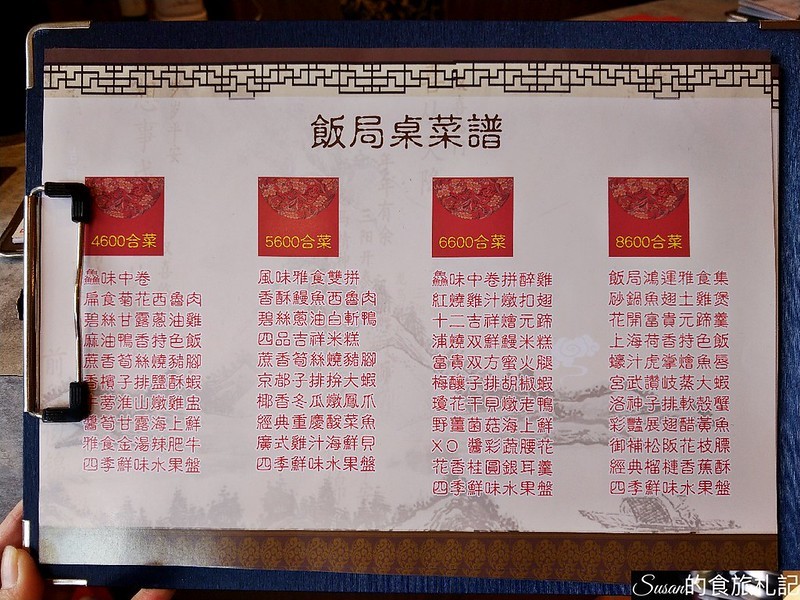 飯局桌菜譜
4600合菜
鱻味中卷
扁食菊花西魯肉
碧絲甘露蔥油雞
麻油鴨香特色飯
蔗香筍絲燒豬腳
香檳子排鹽酥蝦
淮山燉雞盅
醬筍甘露海上鮮
雅食金湯辣肥牛
四季鮮味水果盤
5600合菜
風味雅食雙拼
香酥鰻魚西魯肉
碧絲蔥油白斬鴨
四品吉祥米糕
蔗香筍絲燒豬腳
京都子排拚大蝦
椰香冬瓜燉鳳爪
經典重慶酸菜魚
廣式雞汁海鮮貝
四季鮮味水果盤
6600合菜
鱻味中卷拼醉雞
紅燒雞汁燉扣翅
十二吉祥燴元蹄
浦燒双鮮鰻米糕
富貴双方蜜火腿
梅釀子排胡椒蝦
瓊花干貝燉老鴨
野薑菌菇海上鮮
XO 醬彩蔬腰花
花香桂圓銀耳羹
四季鮮味水果盤
8600合菜
飯局鴻運雅食集
砂鍋魚翅土雞煲
花開富貴元蹄羹
上海荷香特色飯
蠔汁虎掌燴魚唇
宮武讚岐蒸大蝦
洛神子排軟殼蟹
彩豔展翅醋黃魚
御補松阪花枝膘
經典榴槤香蕉酥
四季鮮味水果盤
Susan的食旅札記